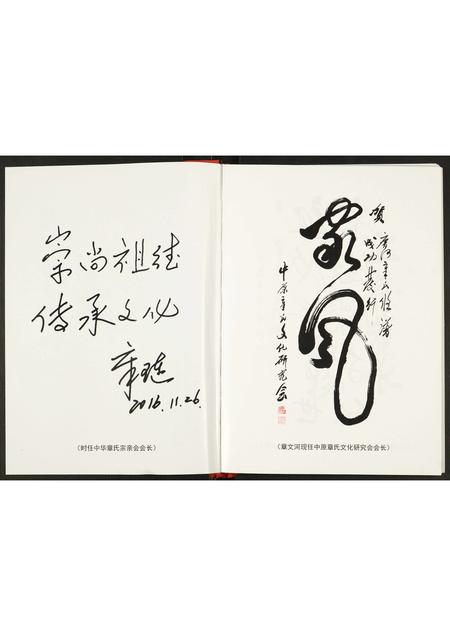 崇尚祖德
传承文化
章琏
2016.11.26.
（时任中华章氏宗亲会会长）
贺
唐河章氏族谱
成功发行
家风
中原章氏文化研究会
（章文河现任中原章氏文化研究会会长）